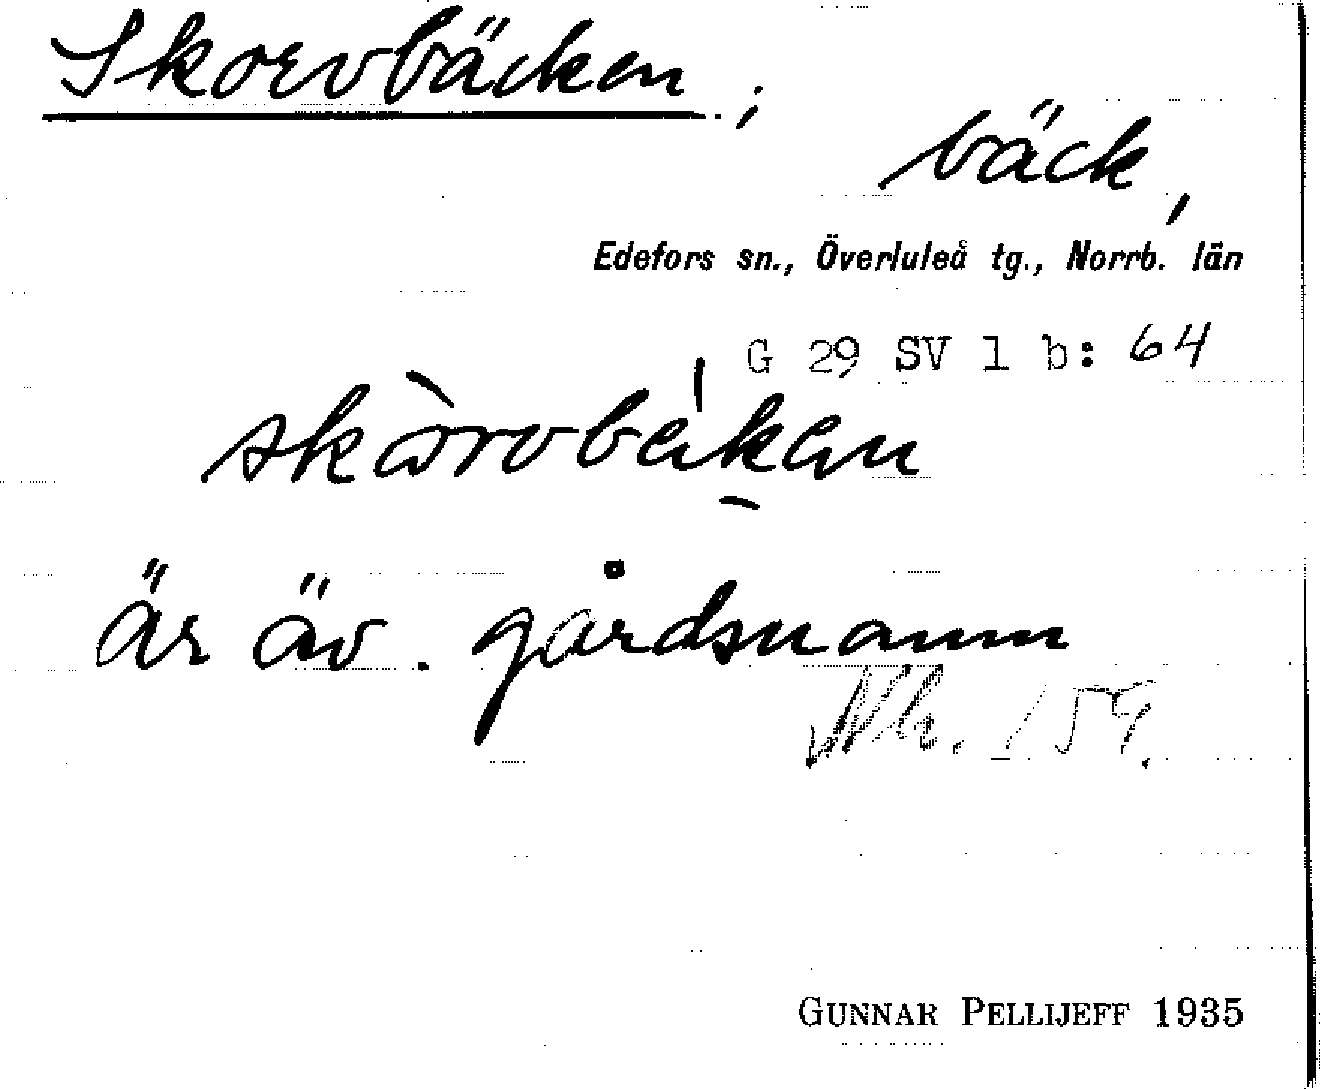 Skorvbäcken;
bäck,
Edefors sn., Överluleå tg., Norrb. län
G 29 SV 1 b: 64
är äv. gårdsnamn
Nh. 159.
GUNNAR PELLIJEFF 1935